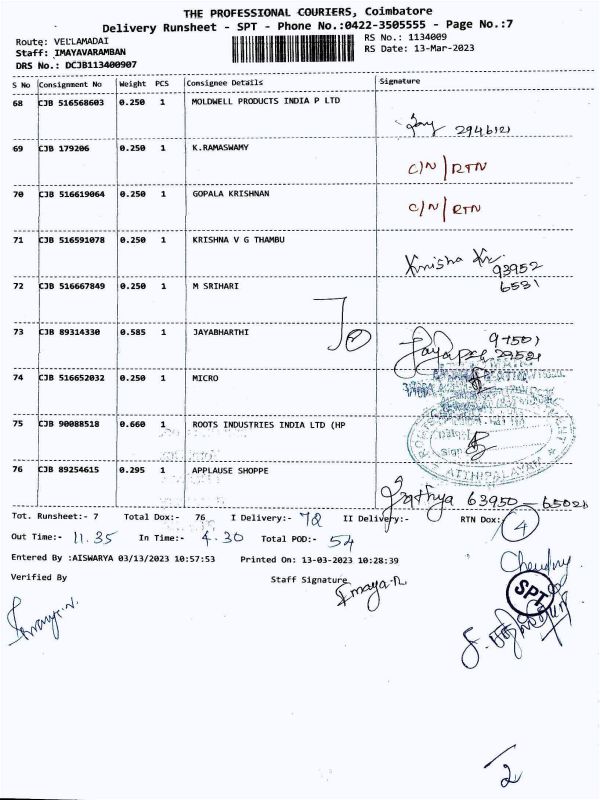 THE PROFESSIONAL COURIERS, Coimbatore
Delivery Runsheet - SPT - Phone No.:0422-3505555 - Page No.:7
Route: VELLAMADAI
RS No.: 1134009
Staff: IMAYAVARAMBAN
RS Date: 13-Mar-2023
DRS No.: DCJB113400907
S No Consignment No Weight PCS Consignee Details Signature
68 CJB 516568603 0.250 1 MOLDWELL PRODUCTS INDIA P LTD
2946121
69 CJB 179206 0.250 1 K.RAMASWAMY
C/N/RTN
70 CJB 516619064 0.250 1 GOPALA KRISHNAN
C/N/RTN
71 CJB 516591078 0.250 1 KRISHNA V G THAMBU
93952
72 CJB 516667849 0.250 1 M SRIHARI
6531
73 CJB 89314330 0.585 1 JAYABHARTHI
74 CJB 516652032 0.250 1 MICRO
75 CJB 90088518 0.660 1 ROOTS INDUSTRIES INDIA LTD (HP
ATTHIPALAYAM
76 CJB 89254615 0.295 1 APPLAUSE SHOPPE
63950 - 65021
Tot. Runsheet:- 7 Total Dox:- 76 I Delivery:- 72 II Delivery:- RTN Dox: 4
Out Time:- 11.35 In Time:- 4.30 Total POD:- 54
Entered By :AISWARYA 03/13/2023 10:57:53 Printed On: 13-03-2023 10:28:39
Verified By Staff Signature
Imaya.n
SPT
2